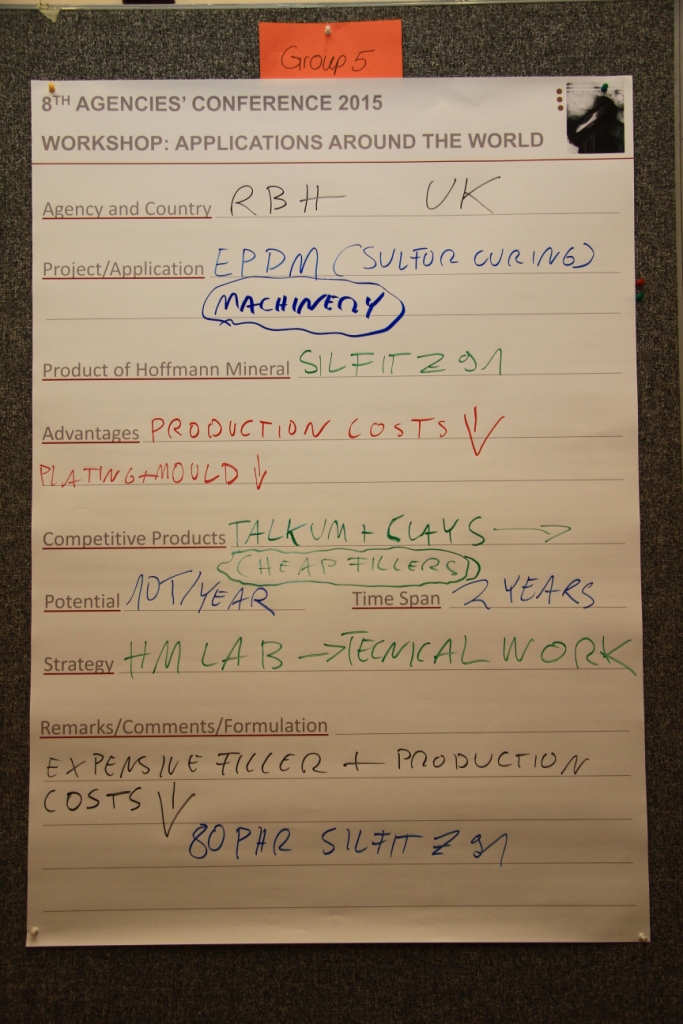 Group 5
8TH AGENCIES' CONFERENCE 2015
WORKSHOP: APPLICATIONS AROUND THE WORLD
Agency and Country RBH UK
Project/Application EPDM (SULFOR CURING)
MACHINERY
Product of Hoffmann Mineral SILFIT Z 91
Advantages PRODUCTION COSTS ↓
PLATING+MOULD ↓
Competitive Products TALKUM + CLAYS →
(CHEAP FILLERS)
Potential 10T/YEAR Time Span 2 YEARS
Strategy HM LAB → TECNICAL WORK
Remarks/Comments/Formulation
EXPENSIVE FILLER + PRODUCTION
COSTS ↓
80 PHR SILFIT Z 91